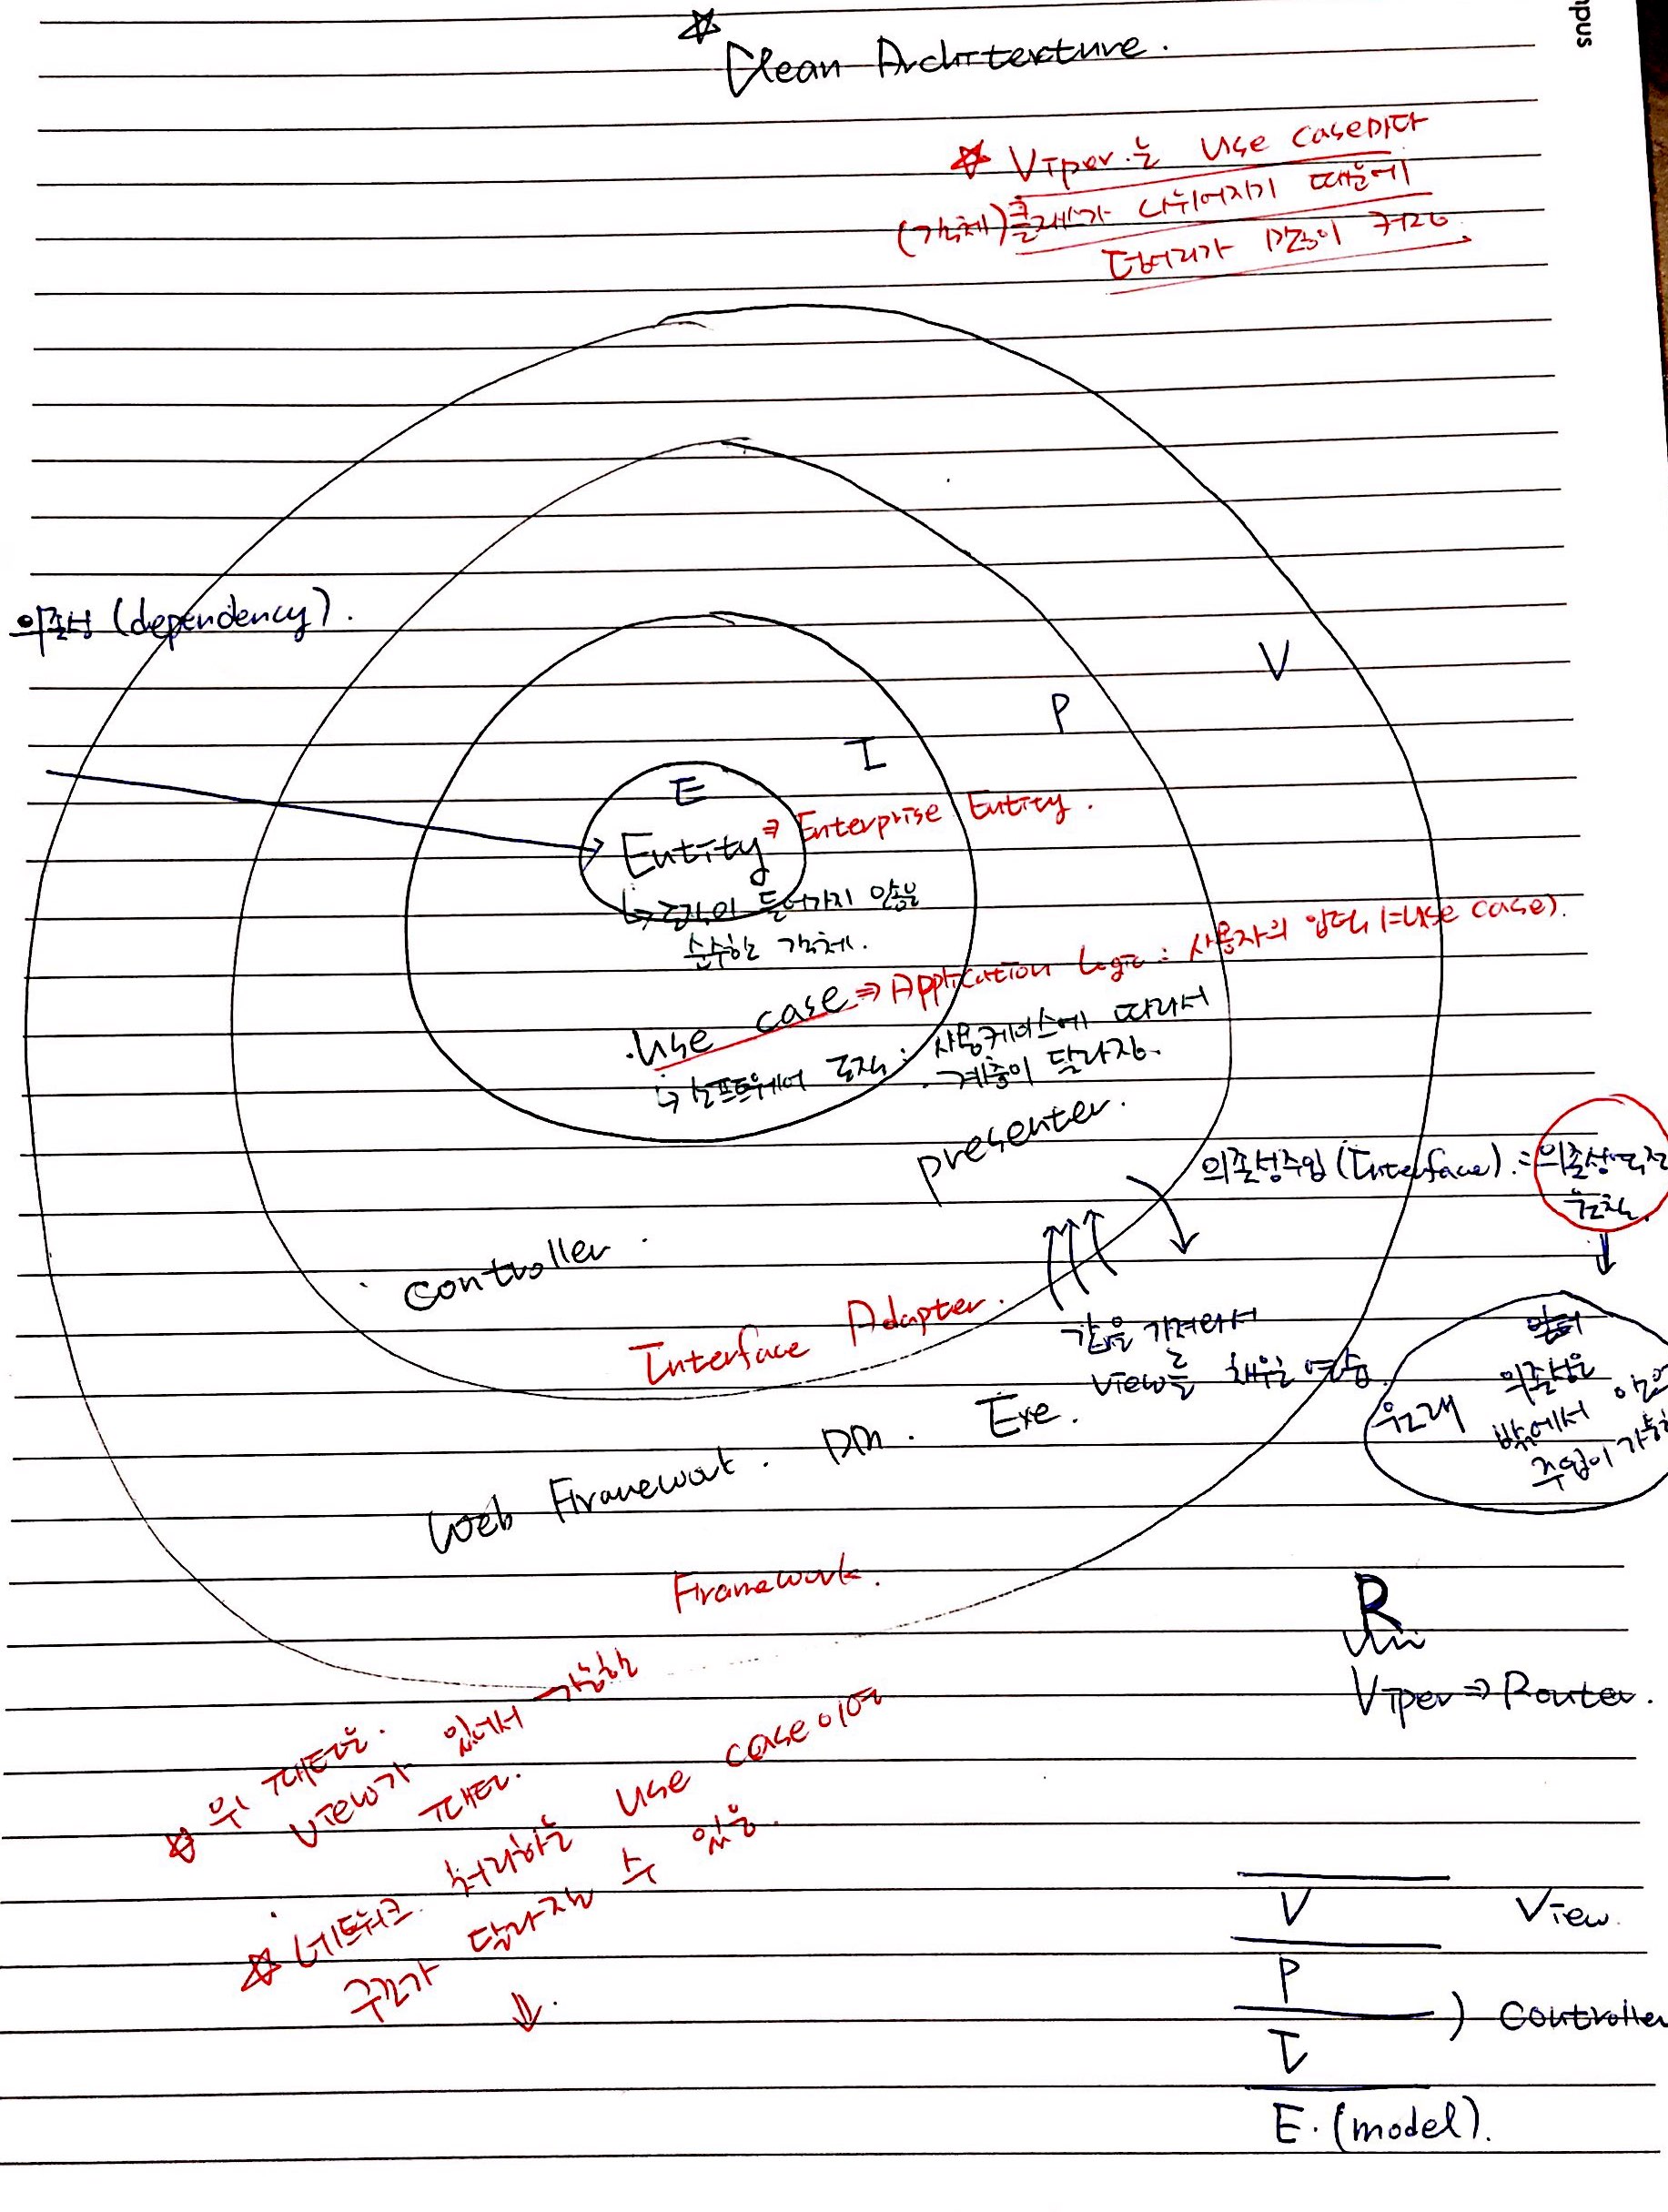 mpus
Clean Archtexture.
Viper는 use case마다
(객체) 클래스가 나뉘어지기 때문에
덩어리가 많이 커짐
의존성 (dependency).
V
P
I
E
Entity ⇒ Enterprise Entity.
↳ 로직이 들어가지 않은
순수한 객체.
use case ⇒ Application Logic : 사용자의 (=use case).
↳ 소프트웨어 로직 : 사용케이스에 따라서
계층이 달라짐.
presenter.
의존성주입 (Interface). = 의존성역전
원칙.
controller.
Interface Adapter.
값을 가져와서
view를 채울
원래
의존성은
밖에서
주입이
Web Framework. Exe.
Framework.
R
Viper ⇒ Router.
위 패턴은
view가 있어서 가능한
패턴.
네트워크 처리하는 use case
구조가 달라질 수 있음.
V View.
P
) Controller
I
E. (model).